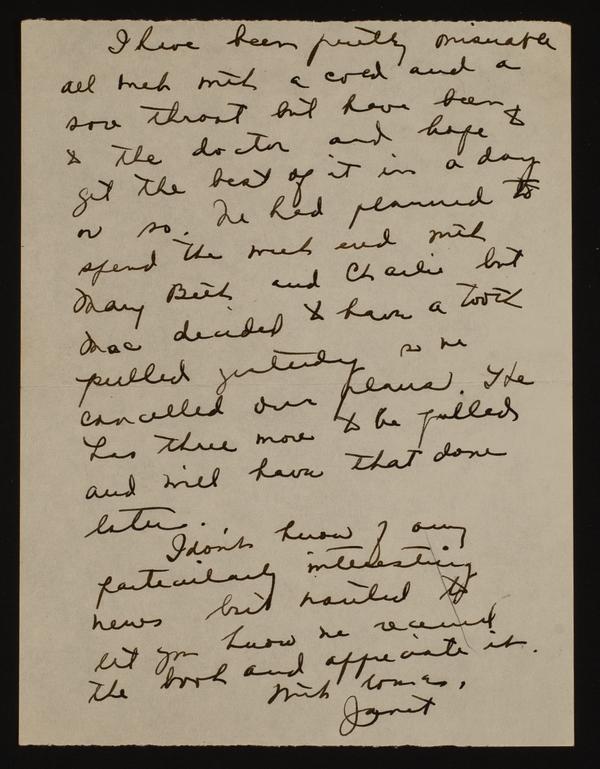 I have been pretty miserable
all week with a cold and a
sore throat but have been
to the doctor and hope to
get the best of it in a day
or so. We had planned to
spend the week end with
Mary Beth and Charlie but
Mac decided to have a tooth
pulled yesterday so we
cancelled our plans. He
has three more to be pulled
and will have that done
later.
I don't know of any
particularly interesting
news but wanted to
let you know we received
the book and appreciate it.
With love,
Janet